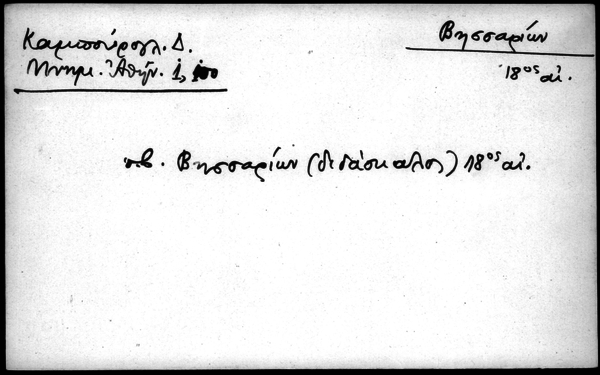 Καμπούρογλ. Δ.
Μνημ. Ἀθην. 1, 100
Βησσαρίων
18ος αἰ.
π.β. Βησσαρίων (διδάσκαλος) 18ος αἰ.